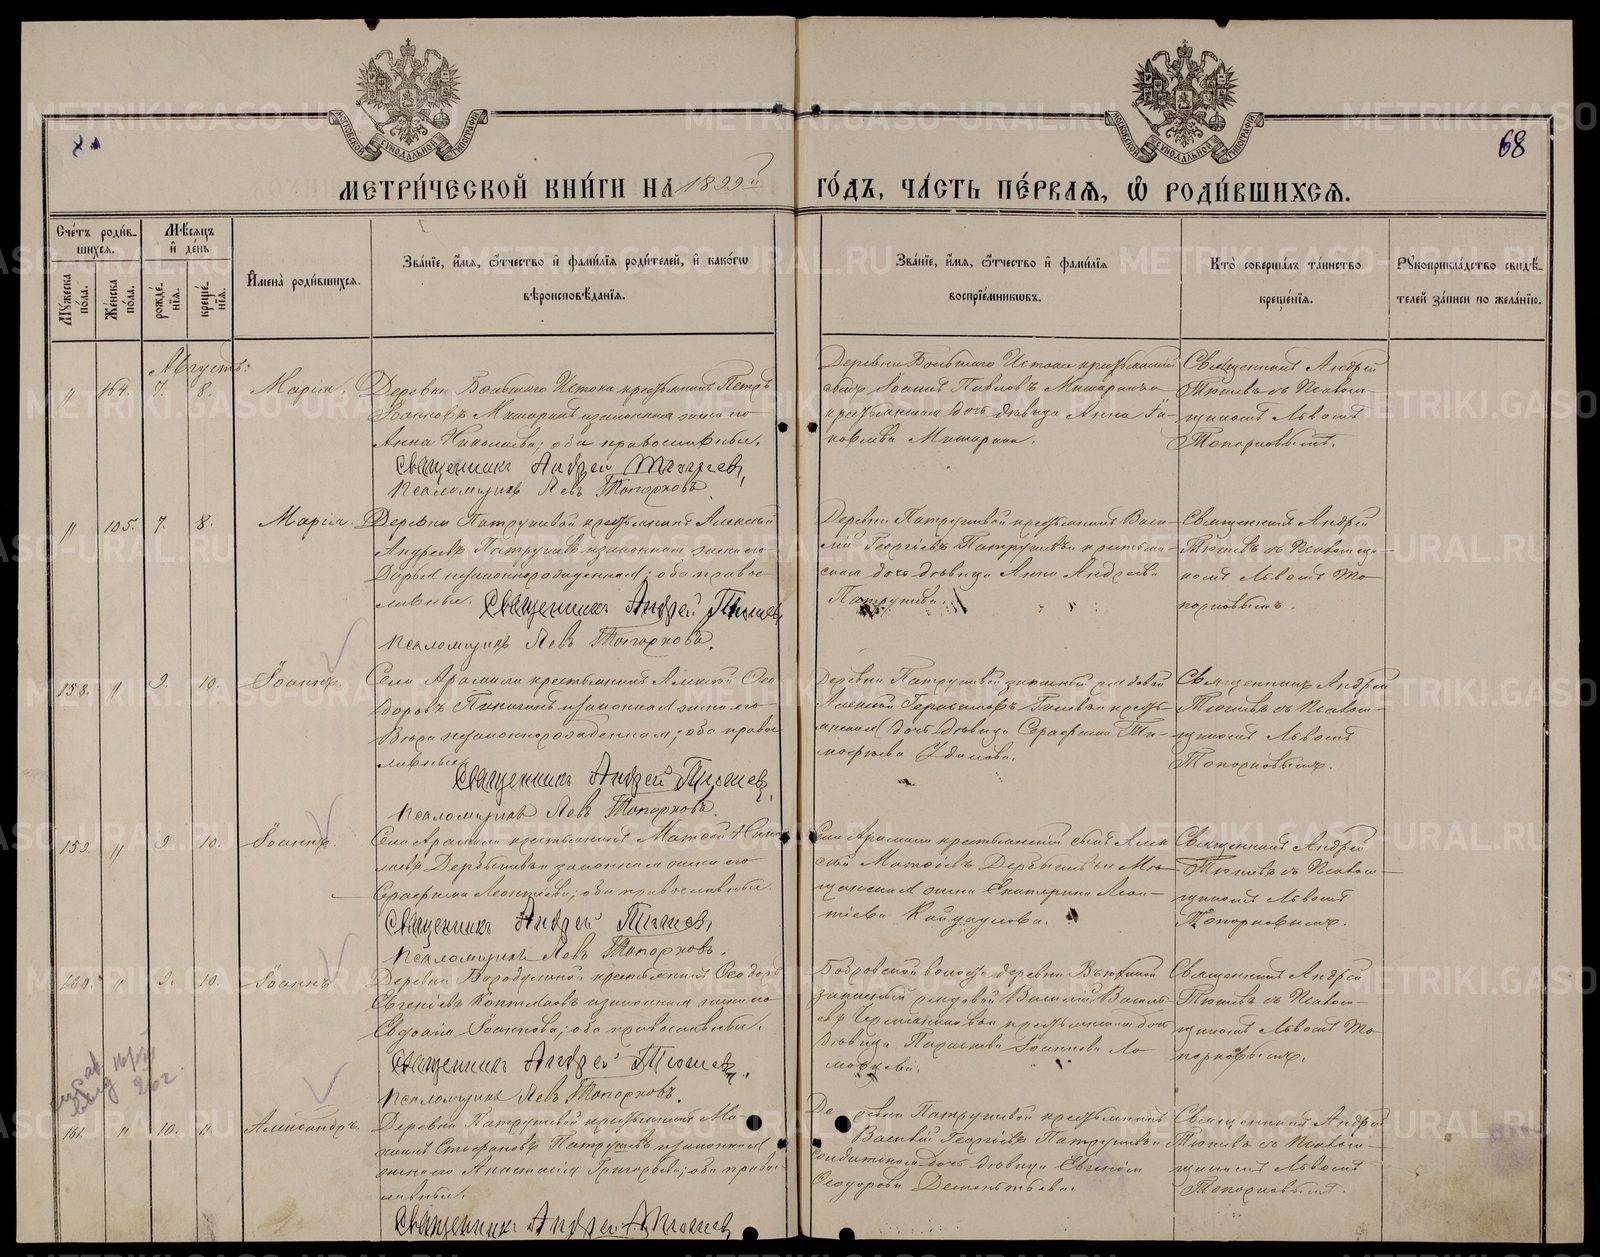 МОСКОВСКОЙ СѴНОДАЛЬНОЙ ТИПОГРАФІИ
МОСКОВСКОЙ СѴНОДАЛЬНОЙ ТИПОГРАФІИ
68
МЕТРИ́ЧЕСКОЙ КНИ́ГИ НА 1899й
ГО́ДЪ, ЧА́СТЬ ПЕ́РВАѦ, Ѡ҆ РОДИ́ВШИХСѦ.
Сче́тъ роди́в-
шихсѧ.
Мꙋжеска по́ла.
Же́нска по́ла.
Мѣ́сѧцъ
и҆ де́нь
рожде́-нїѧ.
креще́-нїѧ.
И҆мена̀ роди́вшихсѧ.
Зва́нїе, и҆́мѧ, ѻ҆́тчество и҆ фами́лїѧ роди́телей, и҆ како́гѡ
вѣроисповѣ́данїѧ.
Зва́нїе, и҆́мѧ, ѻ҆́тчество и҆ фами́лїѧ
воспрїе́мникѡвъ.
Кто̀ соверша́лъ та́инство
креще́нїѧ.
Рꙋкоприкла́дство свидѣ́-
телей за́писи по жела́нїю.
Августъ.
" 164. 7. 8. Марія.
Деревни Большаго Истока крестьянинъ Петръ
Іоанновъ Мишаринъ и законная жена его
Анна Николаева; оба православные.
Священникъ Андрей Тюшев,
Псаломщикъ Левъ Топорковъ.
Деревни Большаго Истока крестьянскій
сынъ Іоаннъ Павловъ Мишаринъ и
крестьянская дочь дѣвица Анна Іа-
ковлева Мишарина.
Священникъ Андрей
Тюшевъ съ Псалом-
щикомъ Львомъ
Топорковымъ.
" 165. 7. 8. Марія.
Деревни Патрушевой крестьянинъ Алексѣй
Андреевъ Патрушевъ и законная жена его
Дарья незаконнорожденная; оба право-
славные. Священникъ Андрей Тюшев
Псаломщикъ Левъ Топорковъ.
Деревни Патрушевой крестьянинъ Васи-
лій Георгіевъ Патрушевъ и крестьян-
ская дочь дѣвица Анна Андреева
Патрушева.
Священникъ Андрей
Тюшевъ съ Псаломщи-
комъ Львомъ То-
порковымъ.
158. " 9. 10. Іоаннъ.
Села Арамили крестьянинъ Алексѣй Ѳео-
доровъ и законная жена его
Вѣра незаконнорожденная; оба право-
славные.
Священникъ Андрей Тюшев,
Псаломщикъ Левъ Топорковъ.
Деревни Патрушевой запасный рядовой
Алексѣй Герасимовъ и кресть-
янская дочь дѣвица Серафима Ти-
мофеева
Священникъ Андрей
Тюшевъ съ Псалом-
щикомъ Львомъ
Топорковымъ.
159. " 9. 10. Іоаннъ.
Села Арамили крестьянинъ Матѳей Нико-
лаевъ Дерябинъ и законная жена его
Серафима Леонтіева; оба православные.
Священникъ Андрей Тюшев,
Псаломщикъ Левъ Топорковъ.
Села Арамили крестьянскій сынъ Алек-
сѣй Матѳіевъ и мѣ-
щанская жена Екатерина Леон-
тіева
Священникъ Андрей
Тюшевъ съ Псалом-
щикомъ Львомъ
Топорковымъ.
160. " 9. 10. Іоаннъ
Деревни Бородулиной крестьянинъ Ѳеодоръ
Евгеніевъ и законная жена его
Евдокія Іоаннова; оба православные.
Священникъ Андрей Тюшев
Псаломщикъ Левъ Топорковъ.
Бобровской волости деревни
запасный рядовой Василій Василь-
евъ и крестьянская дочь
дѣвица Параскева Іоаннова
Священникъ Андрей
Тюшевъ съ Псалом-
щикомъ Львомъ То-
порковымъ.
161. " 10. 11. Александръ.
Деревни Патрушевой крестьянинъ
Стефановъ Патрушевъ и законная
жена его Анастасія Григорьева; оба право-
славные.
Священникъ Андрей Тюшев
Деревни Патрушевой крестьянинъ
Василій Георгіевъ Патрушевъ и
солдатская дочь дѣвица Евгенія
Ѳеодорова Дементьева.
Священникъ Андрей
Тюшевъ съ Псалом-
щикомъ Львомъ
Топорковымъ.
METRIKI.GASO-URAL.RU